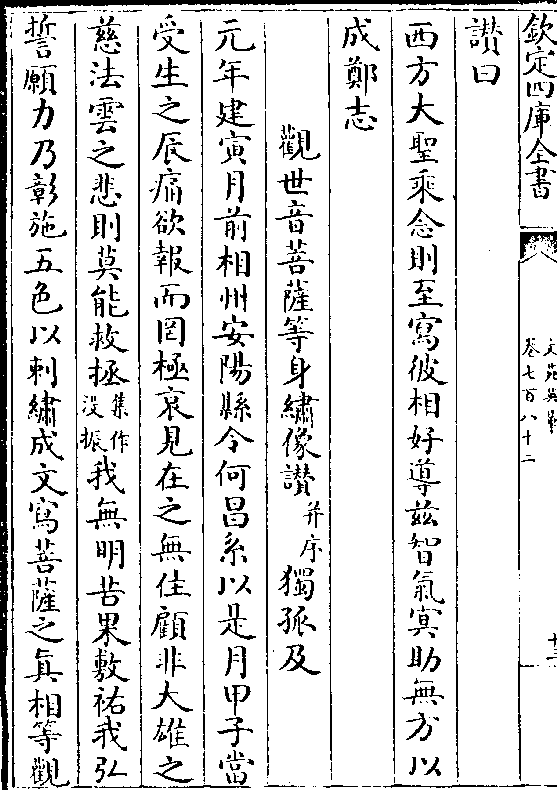 欽定四庫全書
文苑英華
卷七百八十二
十三
讃曰
西方大聖乘念則至寫彼相好導兹智氣冥助無方以
成鄭志
觀世音菩薩等身繡像讃并序 獨孤及
元年建寅月前相州安陽縣令何昌系以是月甲子當
受生之辰痛欲報而罔極哀見在之無住顧非大雄之
慈法雲之悲則莫能救拯集作没振我無明苦果敷祐我弘
誓願力乃彰施五色以刺繡成文寫菩薩之真相等觀